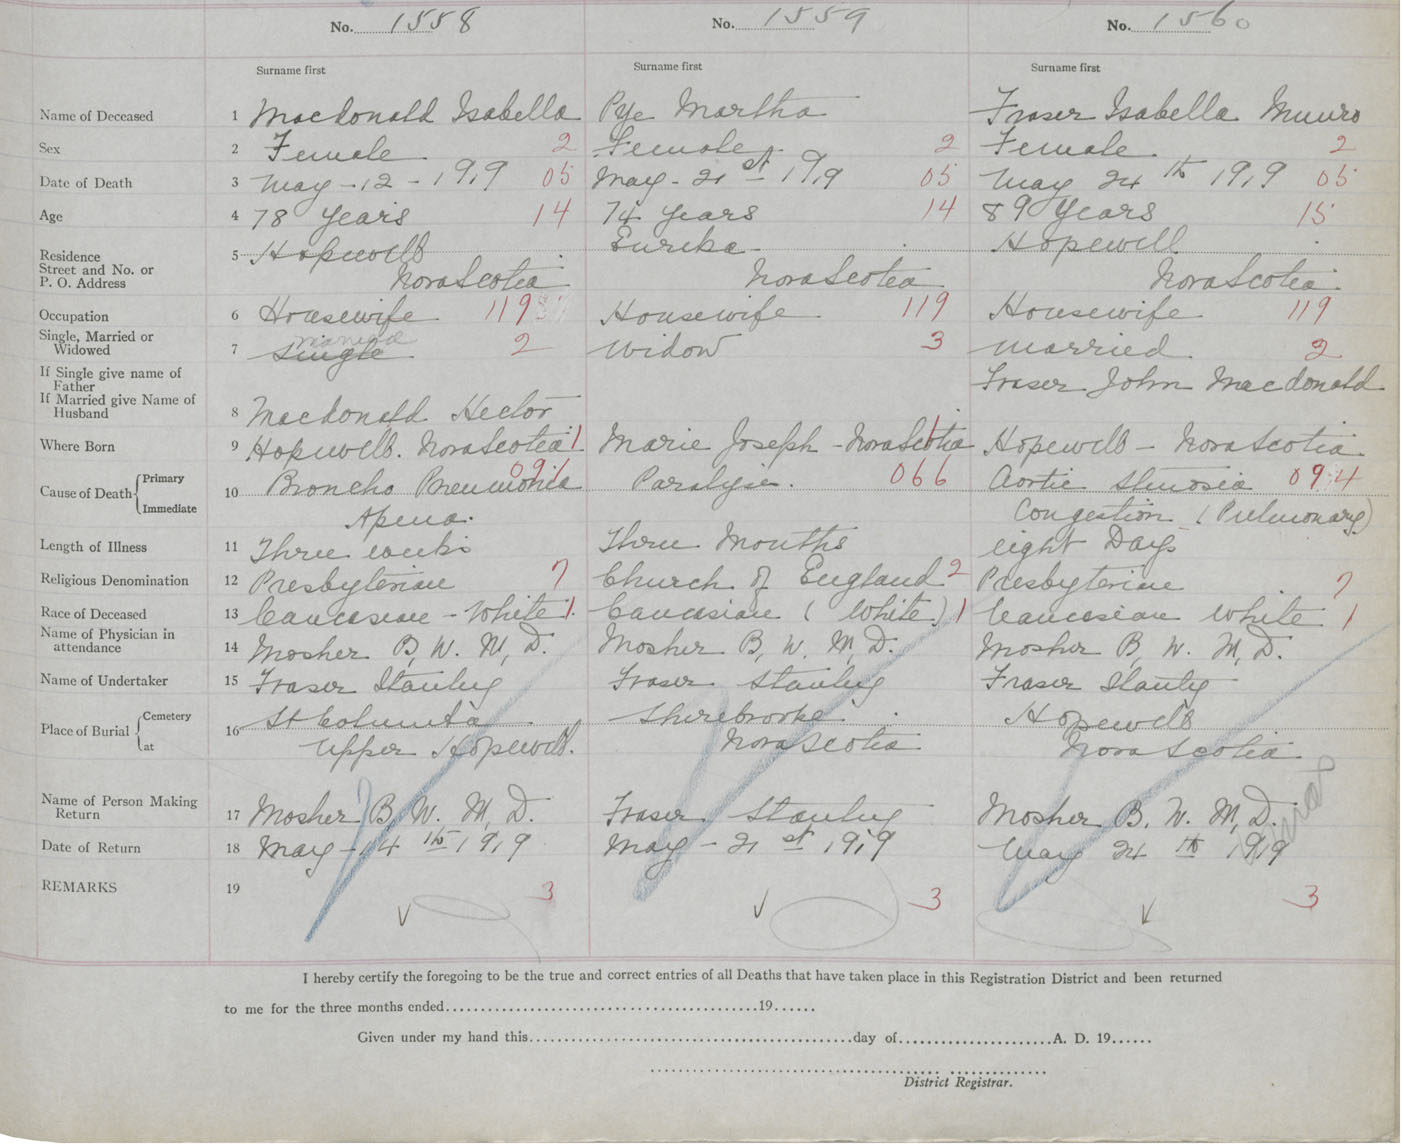 No. 1558 No. 1559 No. 1560
Surname first Surname first Surname first
Name of Deceased 1 Macdonald Isabella Pye Martha Fraser Isabella Munro
Sex 2 Female 2 Female 2 Female 2
Date of Death 3 May - 12 - 1919 05 May - 21st 1919 05 May 24th 1919 05
Age 4 78 years 14 74 years 14 89 years 15
Residence 5 Hopewell Eureka Hopewell
Street and No. or
P. O. Address Nova Scotia Nova Scotia Nova Scotia
Occupation 6 Housewife 119 Housewife 119 Housewife 119
Single, Married or married
Widowed 7 Single 2 Widow 3 married 2
If Single give name of
Father Fraser John Macdonald
If Married give Name of
Husband 8 Macdonald Hector
Where Born 9 Hopewell. Nova Scotia 1 Marie Joseph - Nova Scotia 1 Hopewell - Nova Scotia
Cause of Death Primary 10 Broncho Pneumonia 091 Paralysis. 066 Aortic Stenosis 094
Immediate Apena. Congestion (Pulmonary)
Length of Illness 11 Three weeks Three Months eight Days
Religious Denomination 12 Presbyterian 7 Church of England 2 Presbyterian 7
Race of Deceased 13 Caucasian - White 1 Caucasian (White) 1 Caucasian White 1
Name of Physician in
attendance 14 Mosher B. W. M, D. Mosher B, W. M, D. Mosher B, W. M, D.
Name of Undertaker 15 Fraser Stanley Fraser Stanley Fraser Stanley
Place of Burial Cemetery 16 St Columba Sherebrooke Hopewell
at Upper Hopewell. Nova Scotia Nova Scotia
Name of Person Making
Return 17 Mosher B, W. M, D. Fraser Stanley Mosher B. W. M, D.
Date of Return 18 May - 14th 1919 May - 21st 1919 May 24th 1919
REMARKS 19 3 3 3
I hereby certify the foregoing to be the true and correct entries of all Deaths that have taken place in this Registration District and been returned
to me for the three months ended 19
Given under my hand this day of A. D. 19
District Registrar.